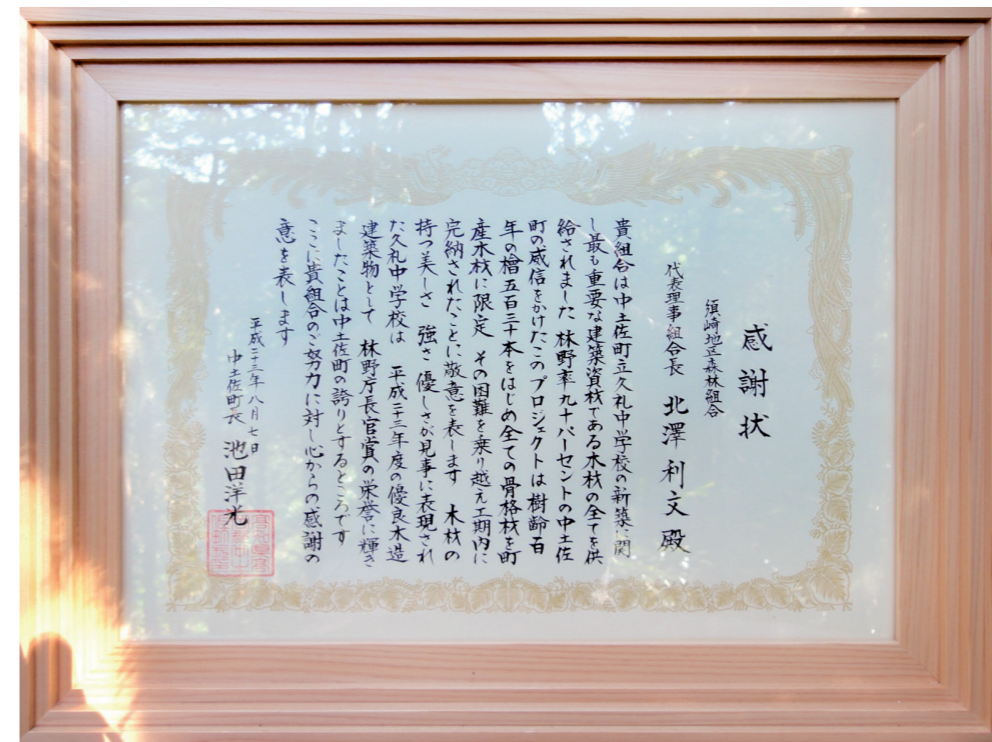 感謝状
須崎地区森林組合
代表理事組合長 北澤利文殿
貴組合は中土佐町立久礼中学校の新築に関
し最も重要な建築資材である木材の全てを供
給されました 林野率九十パーセントの中土佐
町の威信をかけたこのプロジェクトは樹齢百
年の檜五百三十本をはじめ全ての骨格材を町
産木材に限定 その困難を乗り越え工期内に
完納されたことに敬意を表します 木材の
持つ美しさ 強さ 優しさが見事に表現され
た久礼中学校は 平成二十三年度の優良木造
建築物として 林野庁長官賞の栄誉に輝き
ましたことは中土佐町の誇りとするところです
ここに貴組合のご努力に対し心からの感謝の
意を表します
平成二十三年八月七日
中土佐町長 池田洋光